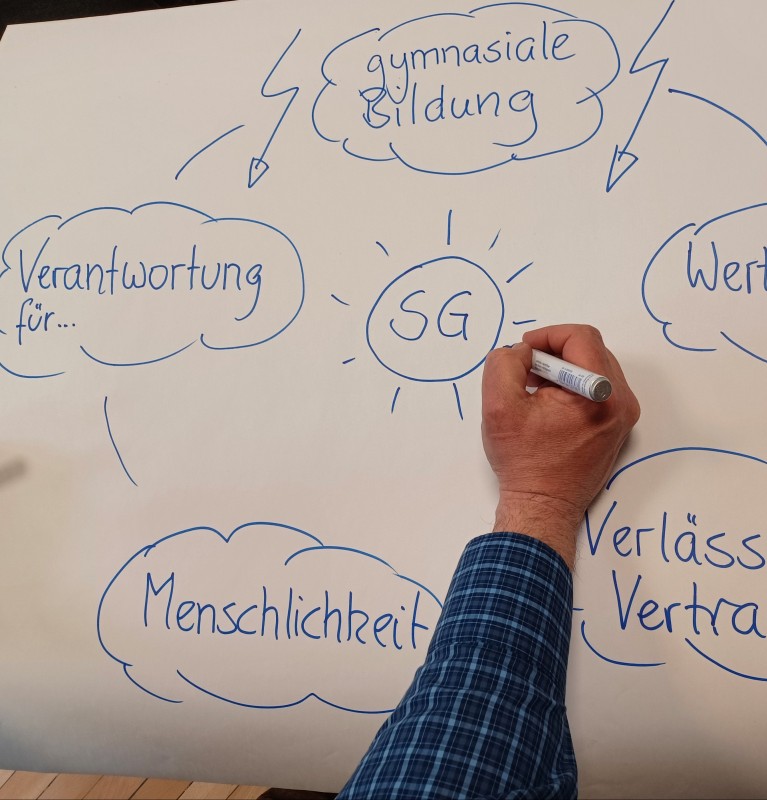 gymnasiale
Bildung
Verantwortung
für...
SG
Wert
Menschlichkeit
Verläss
Vertra